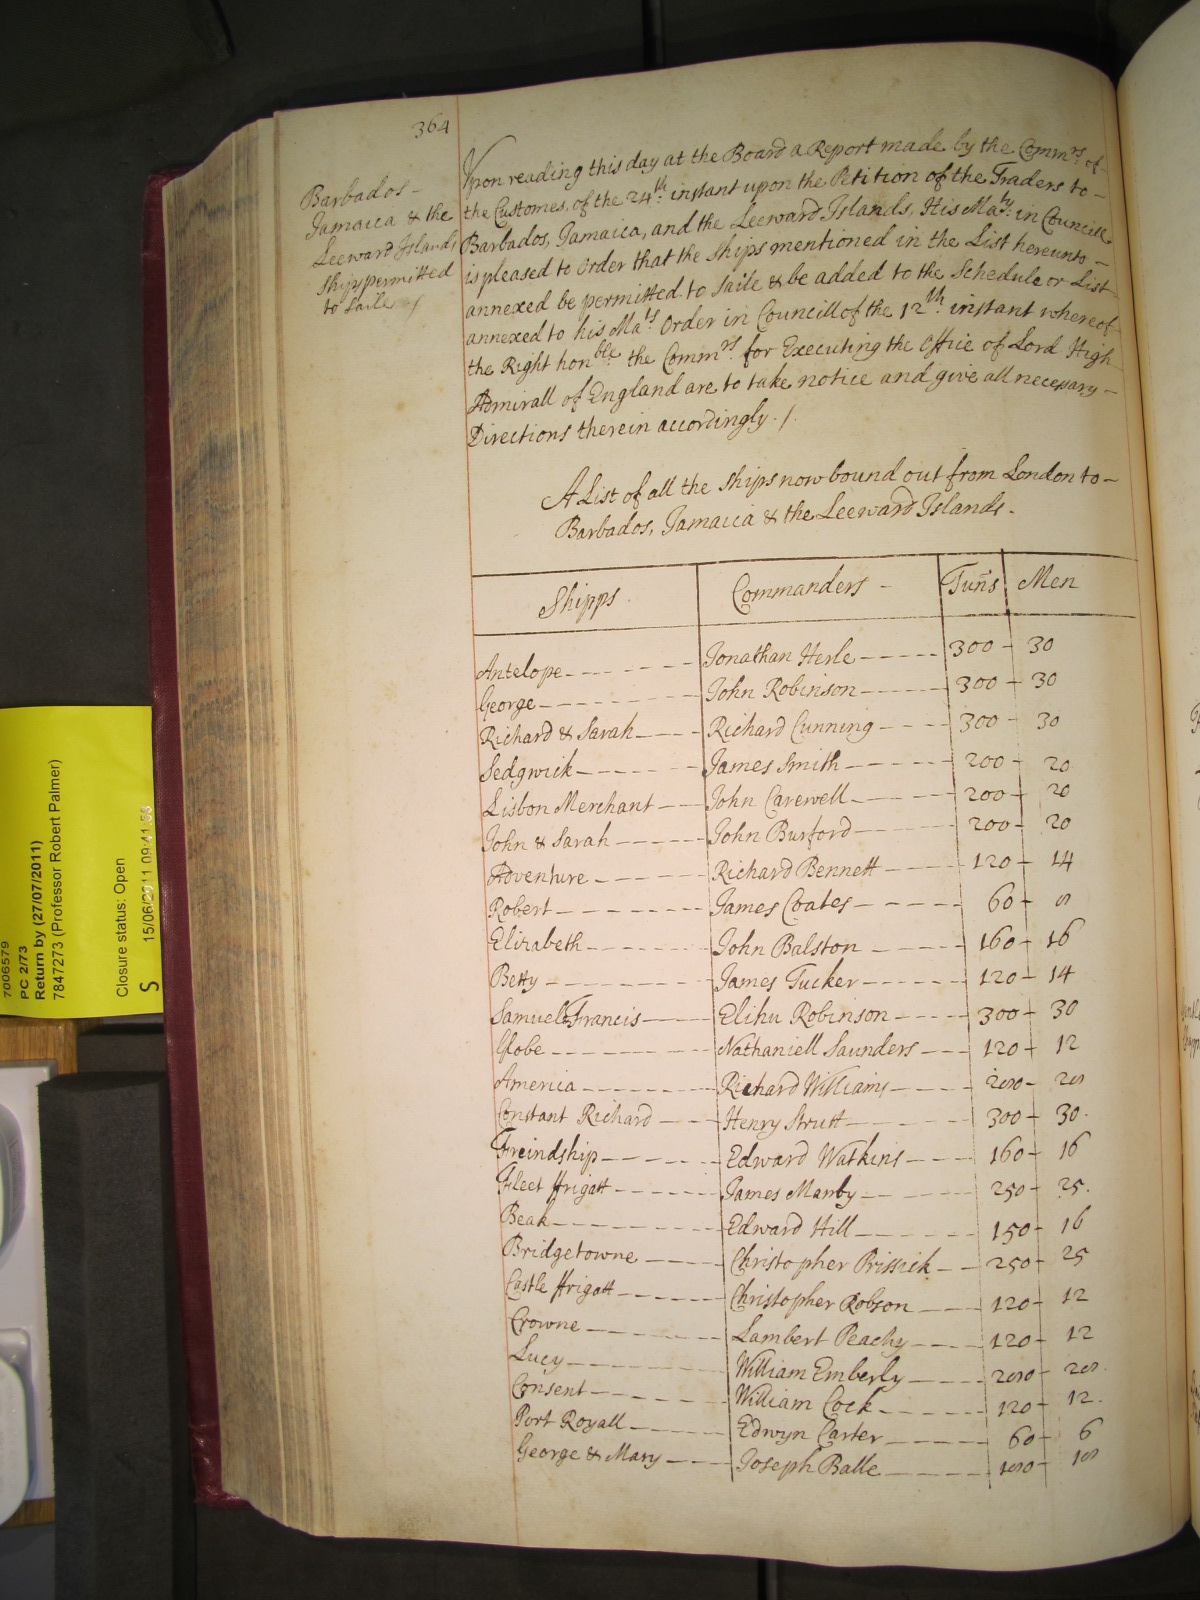 364
Barbados
Jamaica & the
Leeward Islands
ships permitted
to saile
Vpon reading this day at the Board a Report made by the Comm.rs of
the Customes, of the 24th. instant upon the Petition of the Traders to
Barbados, Jamaica, and the Leeward Islands, His Maty. in Councill
is pleased to Order that the ships mentioned in the List hereunto
annexed be permitted to saile & be added to the Schedule or List
annexed to his Mats Order in Councill of the 12th. instant whereof
the Right honble the Commrs. for Executing the Office of Lord High
Admirall of England are to take notice and give all necessary
Directions therein accordingly ./.
A List of all the ships now bound out from London to
Barbados, Jamaica & the Leeward Islands.
Shipps Commanders Tuñs Men
Antelope Jonathan Herle 300 30
George John Robinson 300 30
Richard & Sarah Richard Cunning 300 30
Sedgwick James Smith 200 20
Lisbon Merchant John Carewell 200 20
John & Sarah John Burford 200 20
Adventure Richard Bennett 120 14
Robert James Coates 60 8
Elizabeth John Balston 160 16
Betty James Tucker 120 14
Samuel & Francis Elihu Robinson 300 30
Globe Nathaniell Saunders 120 12
America Richard Williams 200 20
Constant Richard Henry Strutt 300 30
Freindship Edward Watkins 160 16
Fleet ffrigatt James Manby 250 25
Beak Edward Hill 150 16
Bridgetowne Christopher Prissick 250 25
Castle ffrigatt Christopher Robson 120 12
Crowne Lambert Peachy 120 12
Lucy William Emberly 200 20
Consent William Cock 120 12
Port Royall Edwyn Carter 60 6
George & Mary Joseph Balle 100 10
7006579
PC 2/73
Return by (27/07/2011)
7847273 (Professor Robert Palmer)
Closure status: Open
S 15/06/2011 09:41:58